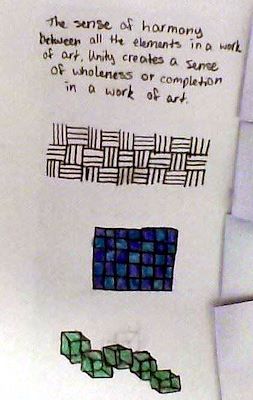 The sense of harmony
between all the elements in a work
of art. Unity creates a sense
of wholeness or completion
in a work of art.